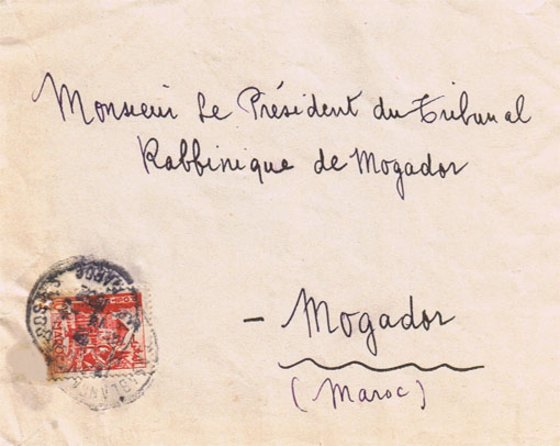 Monsieur Le Président du Tribunal
Rabbinique de Mogador
- Mogador
(Maroc)
MAROC